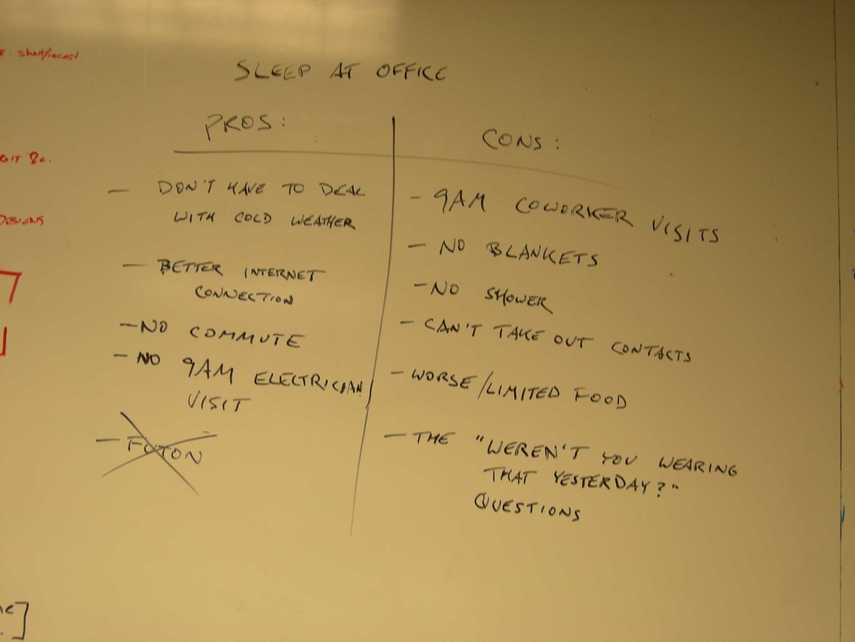 SLEEP AT OFFICE
PROS:
— DON'T HAVE TO DEAL
WITH COLD WEATHER
— BETTER INTERNET
CONNECTION
— NO COMMUTE
— NO 9AM ELECTRICIAN
VISIT
— FUTON
CONS:
— 9AM COWORKER VISITS
— NO BLANKETS
— NO SHOWER
— CAN'T TAKE OUT CONTACTS
— WORSE/LIMITED FOOD
— THE "WEREN'T YOU WEARING
THAT YESTERDAY?"
QUESTIONS